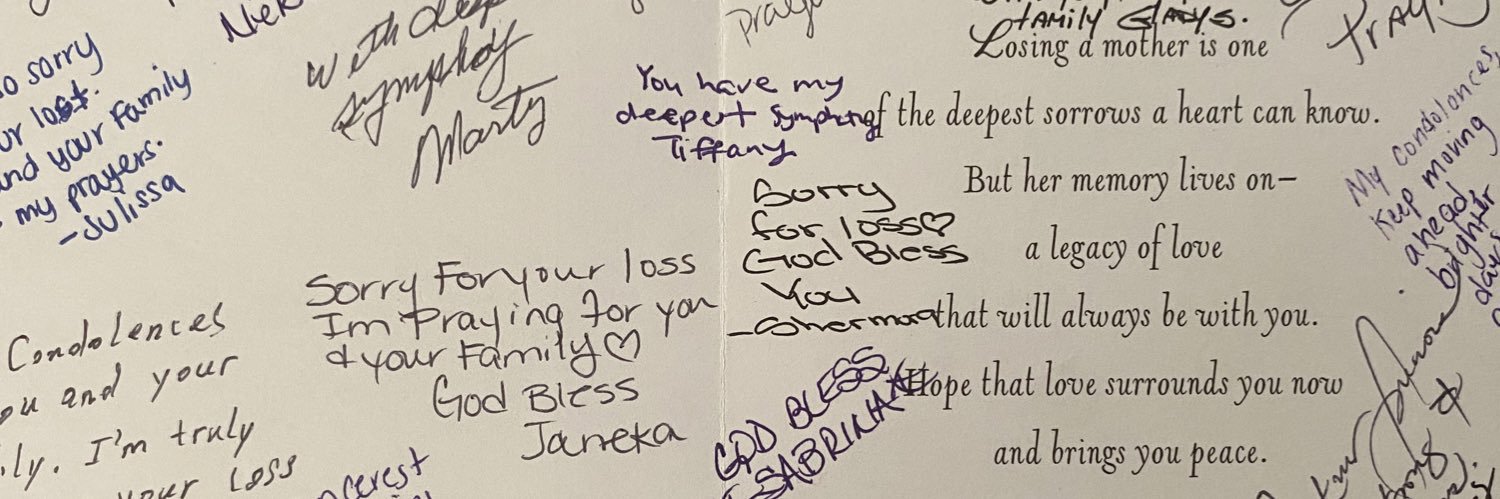 so sorry
ur lost.
and your Family
my prayers.
-Julissa
With deep
symphoy
Marty
You have my
deepert
Tiffany
Sorry
for loss♡
God Bless
You
Sorry For your loss
Im Praying for you
& your Family♡
God Bless
Janeka
Condolences
you and your
ily. I'm truly
your loss
GOD BLESS
SABRINA
family
Losing a mother is one
of the deepest sorrows a heart can know.
But her memory lives on—
a legacy of love
that will always be with you.
Hope that love surrounds you now
and brings you peace.
My condolences,
Keep moving
ahead,
brighter
days